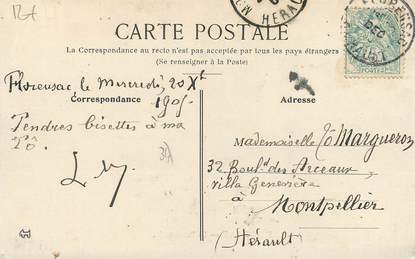 CARTE POSTALE
La Correspondance au recto n'est pas acceptée par tous les pays étrangers
(Se renseigner à la Poste)
Florensac le Mercredi, 20 Xᵇʳᵉ
Correspondance
1905
Tendres bisettes à ma
Tô.
Adresse
Mademoiselle Tô Margueron
32 Boulᵈ des Arceaux
villa Geneviève
à
Montpellier
(Hérault)
HERAULT
DEC
POSTES